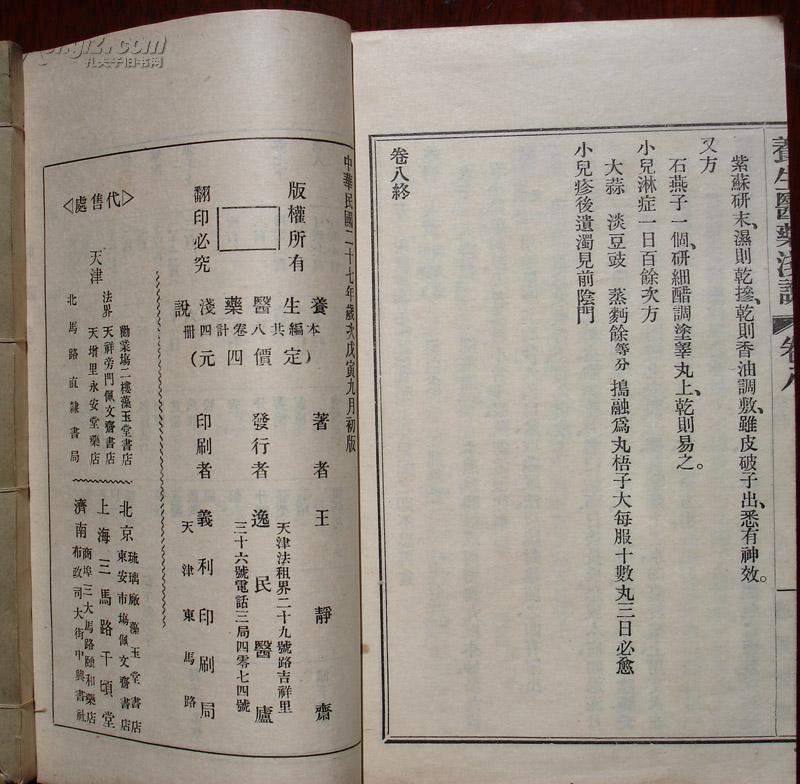 養生醫藥淺說 卷八
紫蘇研末、濕則乾摻、乾則香油調敷、雖皮破子出、悉有神效。
又方
石燕子一個、研細醋調塗睪丸上、乾則易之。
小兒淋症一日百餘次方
大蒜 淡豆豉 蒸麪餘等分 搗融爲丸梧子大每服十數丸三日必愈
小兒疹後遺濁見前陰門
卷八終
中華民國二十七年歲次戊寅九月初版
版權所有
翻印必究
養生醫藥淺說
本編共八卷計四冊
(定價四元)
著者王靜齋
發行者逸民醫廬
天津法租界二十九號路吉祥里
三十六號電話三局四零七四號
印刷者義利印刷局
天津東馬路
代售處
天津
法界
勸業場二樓藻玉堂書店
天祥旁門佩文齋書店
天增里永安堂藥店
北馬路直隸書局
北京
琉璃廠藻玉堂書店
東安市場佩文齋書店
上海三馬路千頃堂
濟南
商埠三大馬路頤和藥店
布政司大街中興書社
孔夫子旧书网